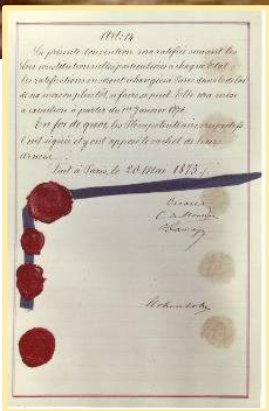 Art: 14
La présente Convention sera ratifiée suivant les
lois constitutionnelles particulières à chaque Etat;
les ratifications en seront échangées à Paris dans le délai
de six mois ou plus tôt, si faire se peut. Elle sera mise
à exécution à partir du 1er Janvier 1876.
En foi de quoi, les Plénipotentiaires respectifs
l'ont signée et y ont apposé le cachet de leurs
armes.
Fait à Paris, le 20 Mai 1875.
Decazes
C. de Meaux